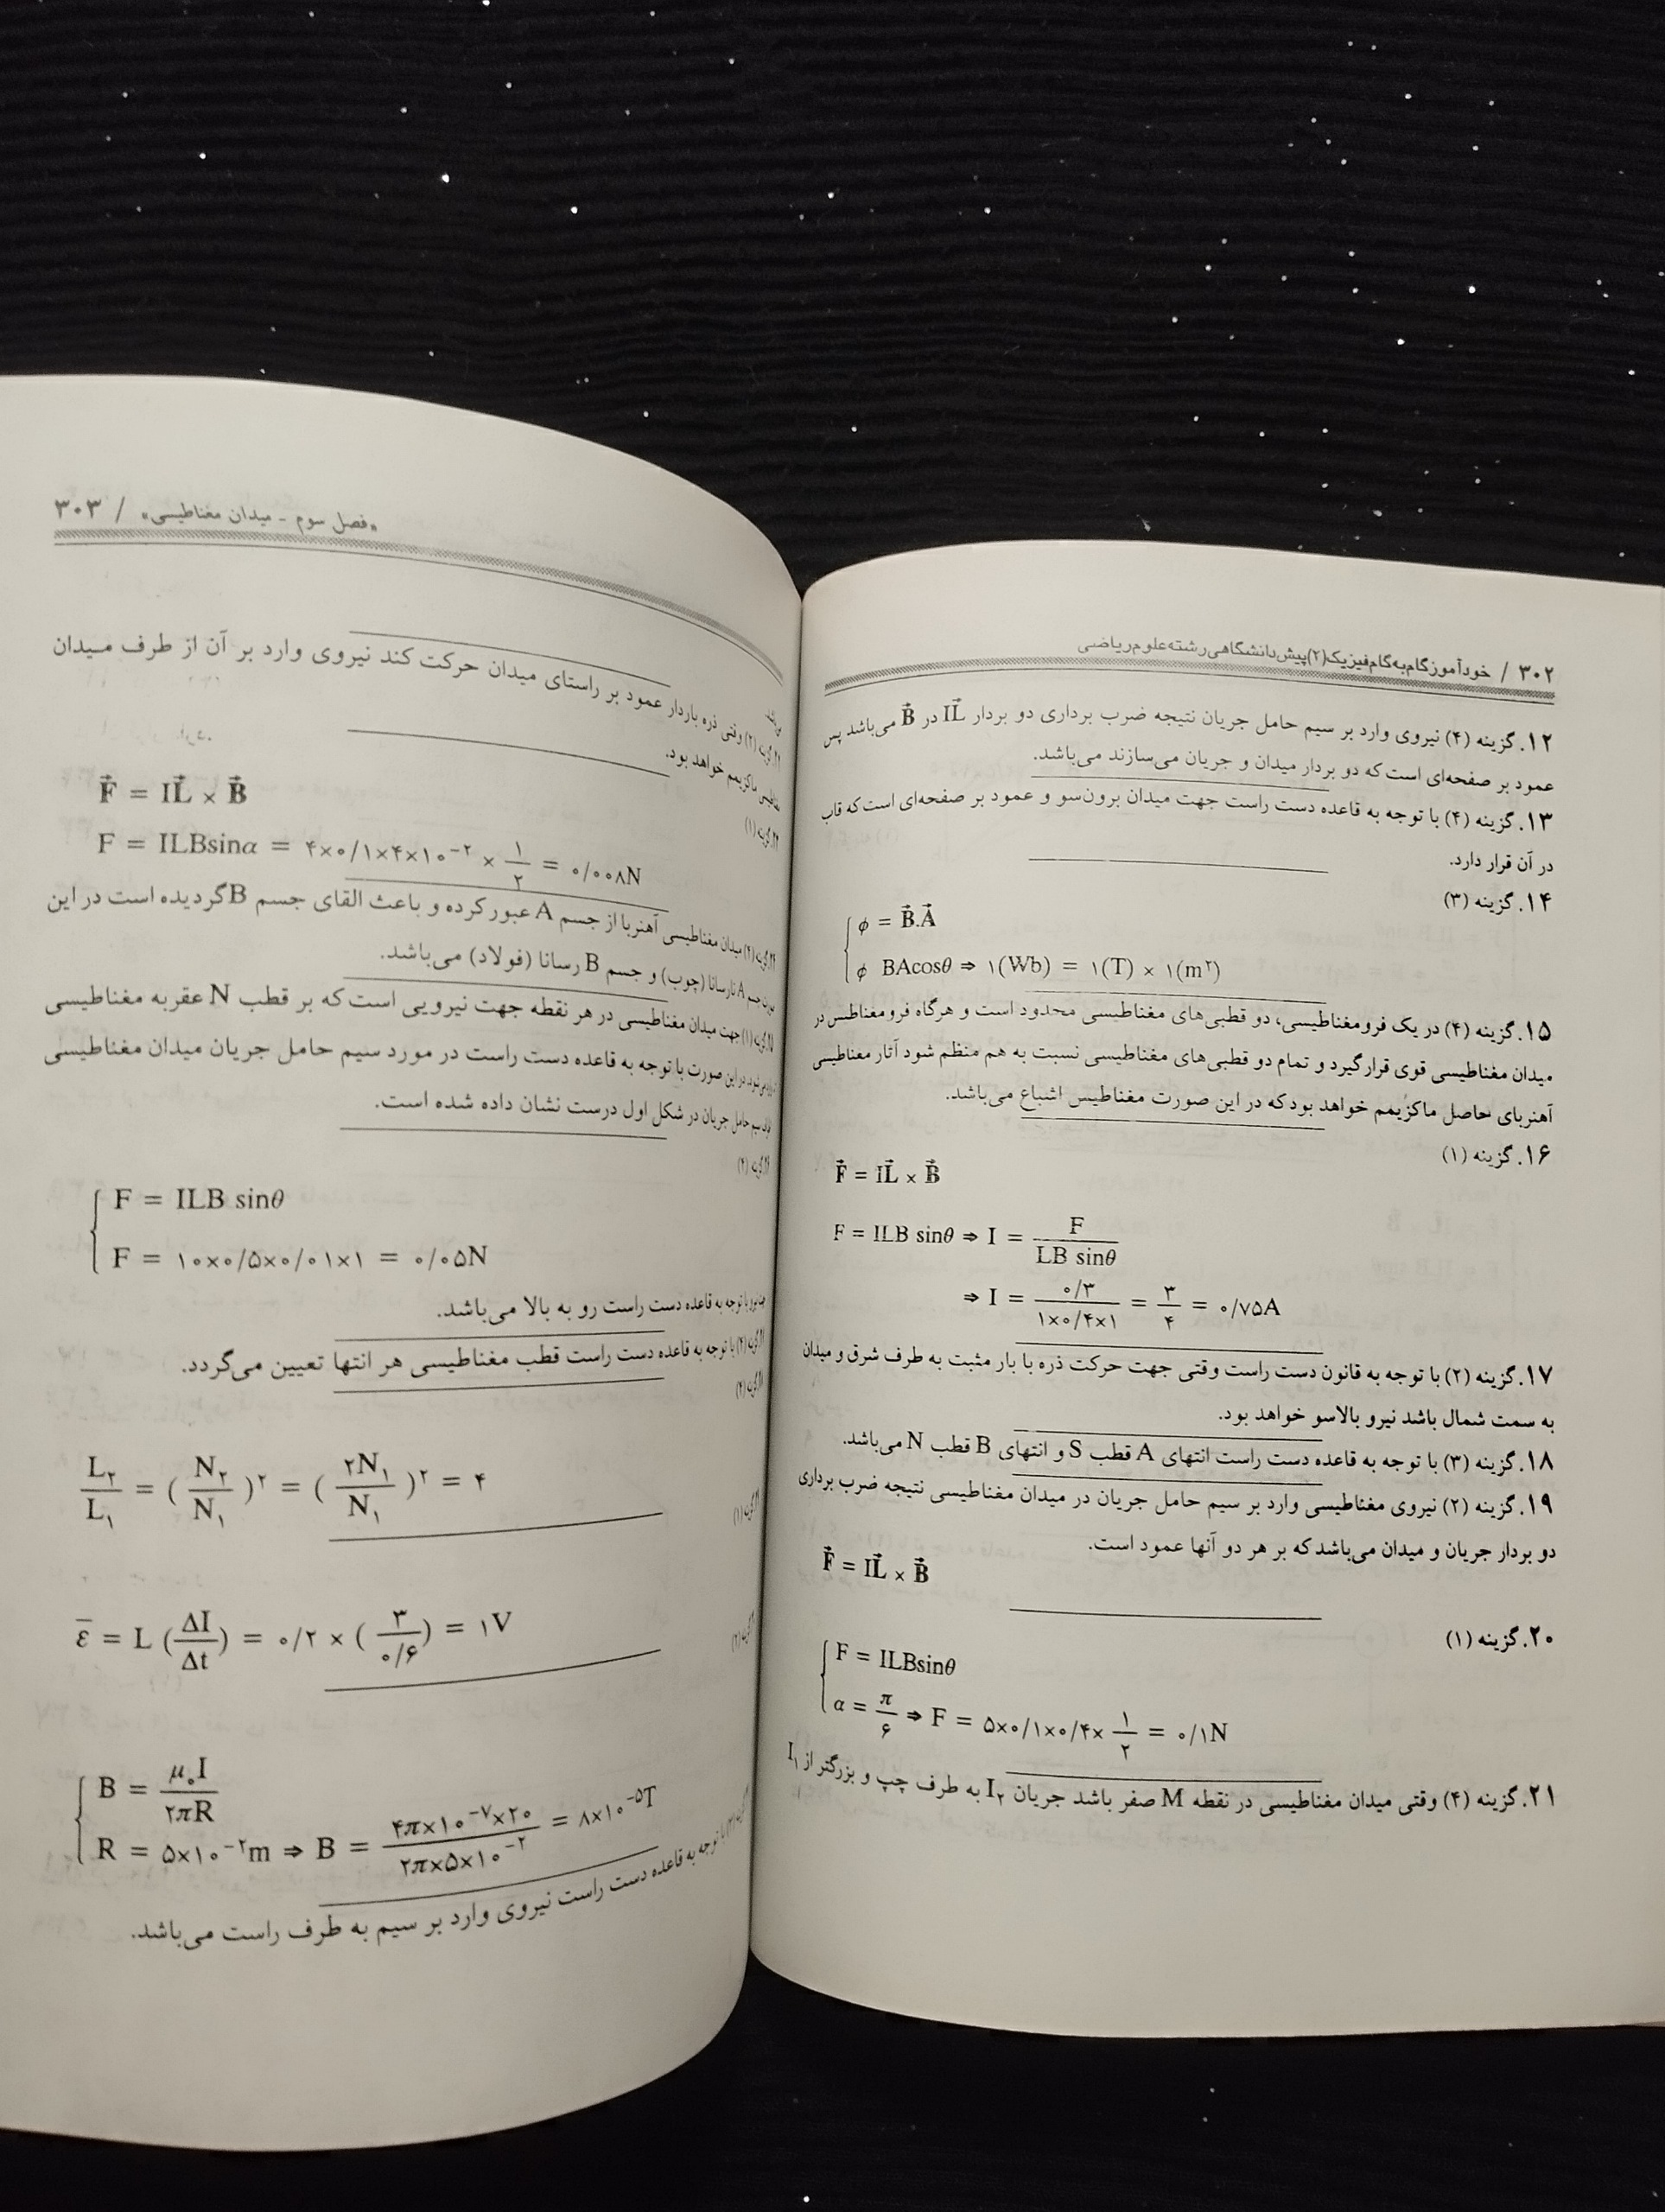 ۳۰۲ / خودآموز گام‌به‌گام فیزیک (۲) پیش‌دانشگاهی رشته علوم ریاضی
۱۲. گزینه (۴) نیروی وارد بر سیم حامل جریان نتیجه ضرب برداری دو بردار IL⃗ در B⃗ می‌باشد پس
عمود بر صفحه‌ای است که دو بردار میدان و جریان می‌سازند می‌باشد.
۱۳. گزینه (۴) با توجه به قاعده دست راست جهت میدان برون‌سو و عمود بر صفحه‌ای است که قاب
در آن قرار دارد.
۱۴. گزینه (۳)
ϕ = B⃗.A⃗
ϕ BAcosθ ⇒ ۱(Wb) = ۱(T) × ۱(m۲)
۱۵. گزینه (۴) در یک فرومغناطیسی، دو قطبی‌های مغناطیسی محدود است و هرگاه فرومغناطیس در
میدان مغناطیسی قوی قرار گیرد و تمام دو قطبی‌های مغناطیسی نسبت به هم منظم شود آثار مغناطیسی
آهنربای حاصل ماکزیمم خواهد بود که در این صورت مغناطیس اشباع می‌باشد.
۱۶. گزینه (۱)
F⃗ = IL⃗ × B⃗
F = ILB sinθ ⇒ I = F / LB sinθ
⇒ I = ۰/۳ / ۱×۰/۴×۱ = ۳/۴ = ۰/۷۵A
۱۷. گزینه (۲) با توجه به قانون دست راست وقتی جهت حرکت ذره با بار مثبت به طرف شرق و میدان
به سمت شمال باشد نیرو بالاسو خواهد بود.
۱۸. گزینه (۳) با توجه به قاعده دست راست انتهای A قطب S و انتهای B قطب N می‌باشد.
۱۹. گزینه (۲) نیروی مغناطیسی وارد بر سیم حامل جریان در میدان مغناطیسی نتیجه ضرب برداری
دو بردار جریان و میدان می‌باشد که بر هر دو آنها عمود است.
F⃗ = IL⃗ × B⃗
۲۰. گزینه (۱)
F = ILBsinθ
α = π/۶ ⇒ F = ۵×۰/۱×۰/۴× ۱/۲ = ۰/۱N
۲۱. گزینه (۴) وقتی میدان مغناطیسی در نقطه M صفر باشد جریان I۲ به طرف چپ و بزرگتر از I۱
«فصل سوم - میدان مغناطیسی» / ۳۰۳
گزینه (۲) وقتی ذره باردار عمود بر راستای میدان حرکت کند نیروی وارد بر آن از طرف میدان
ماکزیمم خواهد بود.
گزینه (۱)
F⃗ = IL⃗ × B⃗
F = ILBsinα = ۴×۰/۱×۴×۱۰⁻۲ × ۱/۲ = ۰/۰۰۸N
میدان مغناطیسی آهنربا از جسم A عبور کرده و باعث القای جسم B گردیده است در این
صورت جسم A نارسانا (چوب) و جسم B رسانا (فولاد) می‌باشد.
جهت میدان مغناطیسی در هر نقطه جهت نیرویی است که بر قطب N عقربه مغناطیسی
در این صورت با توجه به قاعده دست راست در مورد سیم حامل جریان میدان مغناطیسی
سیم حامل جریان در شکل اول درست نشان داده شده است.
F = ILB sinθ
F = ۱۰×۰/۵×۰/۰۱×۱ = ۰/۰۵N
با توجه به قاعده دست راست رو به بالا می‌باشد.
با توجه به قاعده دست راست قطب مغناطیسی هر انتها تعیین می‌گردد.
L۲/L۱ = (N۲/N۱)۲ = (۲N۱/N۱)۲ = ۴
ε̅ = L (ΔI/Δt) = ۰/۲ × (۳/۰/۶) = ۱V
B = μ۰I / ۲πR
R = ۵×۱۰⁻۲m ⇒ B = ۴π×۱۰⁻۷×۲۰ / ۲π×۵×۱۰⁻۲ = ۸×۱۰⁻۵T
توجه به قاعده دست راست نیروی وارد بر سیم به طرف راست می‌باشد.